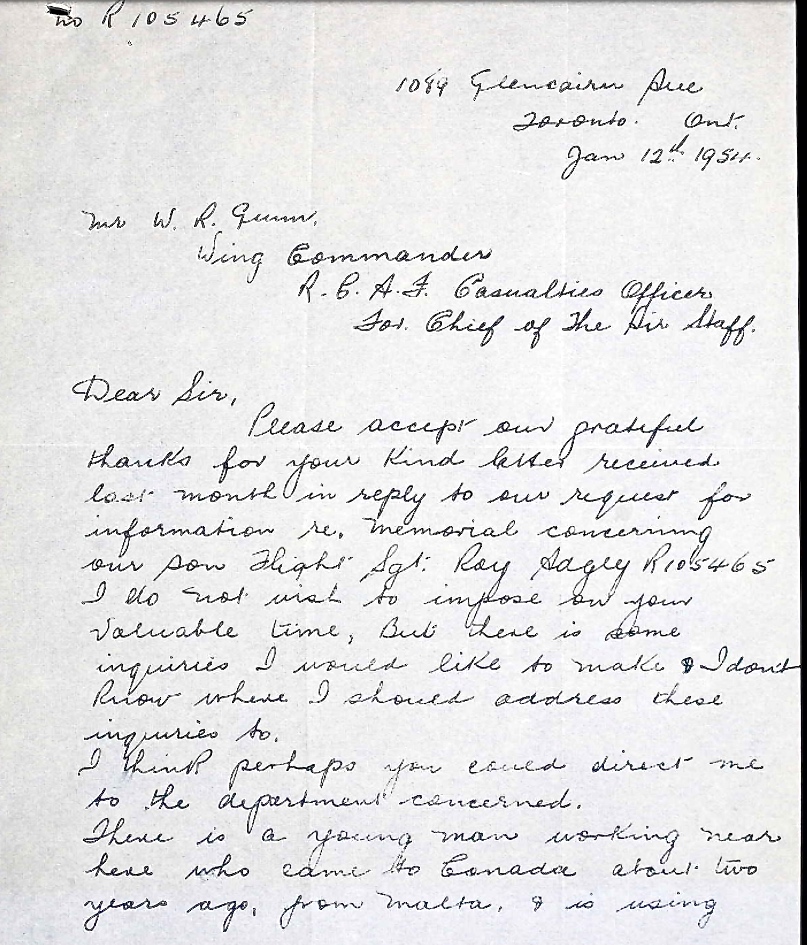 No R105465
1089 Glencairn Ave
Toronto. Ont.
Jan 12th 1954.
Mr W. R. Gunn,
Wing Commander
R. C. A. F. Casualties Officer
For. Chief of The Air Staff.
Dear Sir,
Please accept our grateful
thanks for your kind letter received
last month in reply to our request for
information re. Memorial concerning
our son Flight Sgt. Roy Adgey R105465
I do not wish to impose on your
valuable time, But there is some
inquiries I would like to make & I don't
know where I should address these
inquiries to.
I think perhaps you could direct me
to the department concerned.
There is a young man working near
here who came to Canada about two
years ago, from Malta, & is using